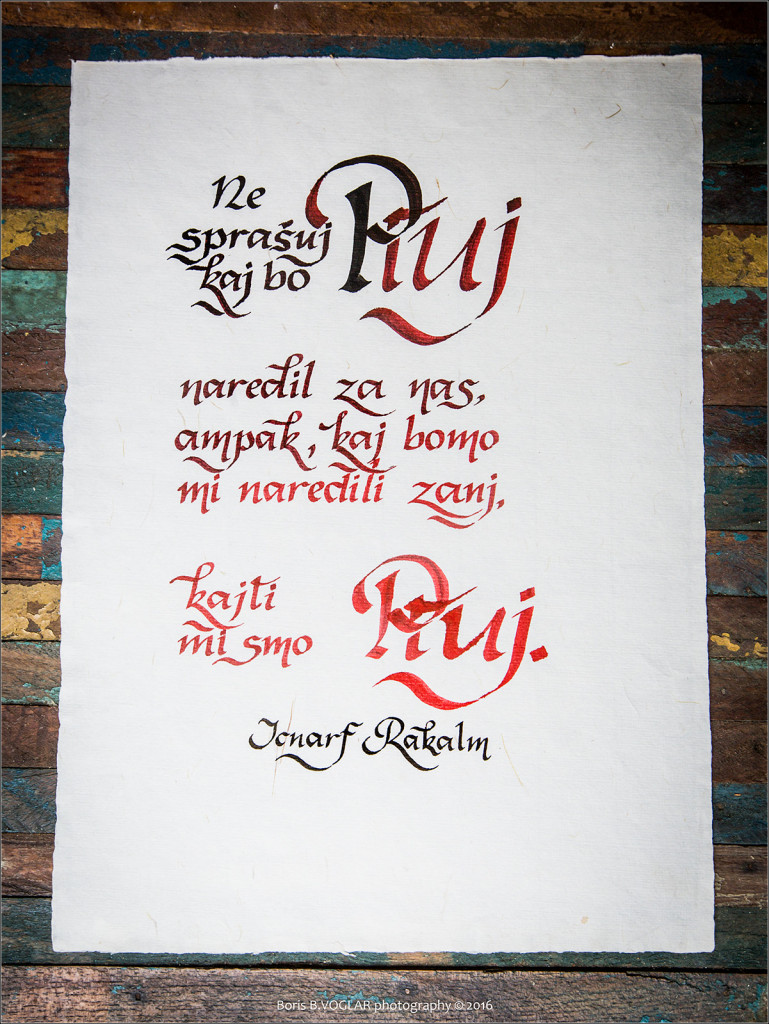 Ne
sprašuj
kaj bo Ptuj
naredil za nas,
ampak, kaj bomo
mi naredili zanj,
kajti
mi smo Ptuj.
Icnarf Rakalm
Boris B.VOGLAR photography © 2016